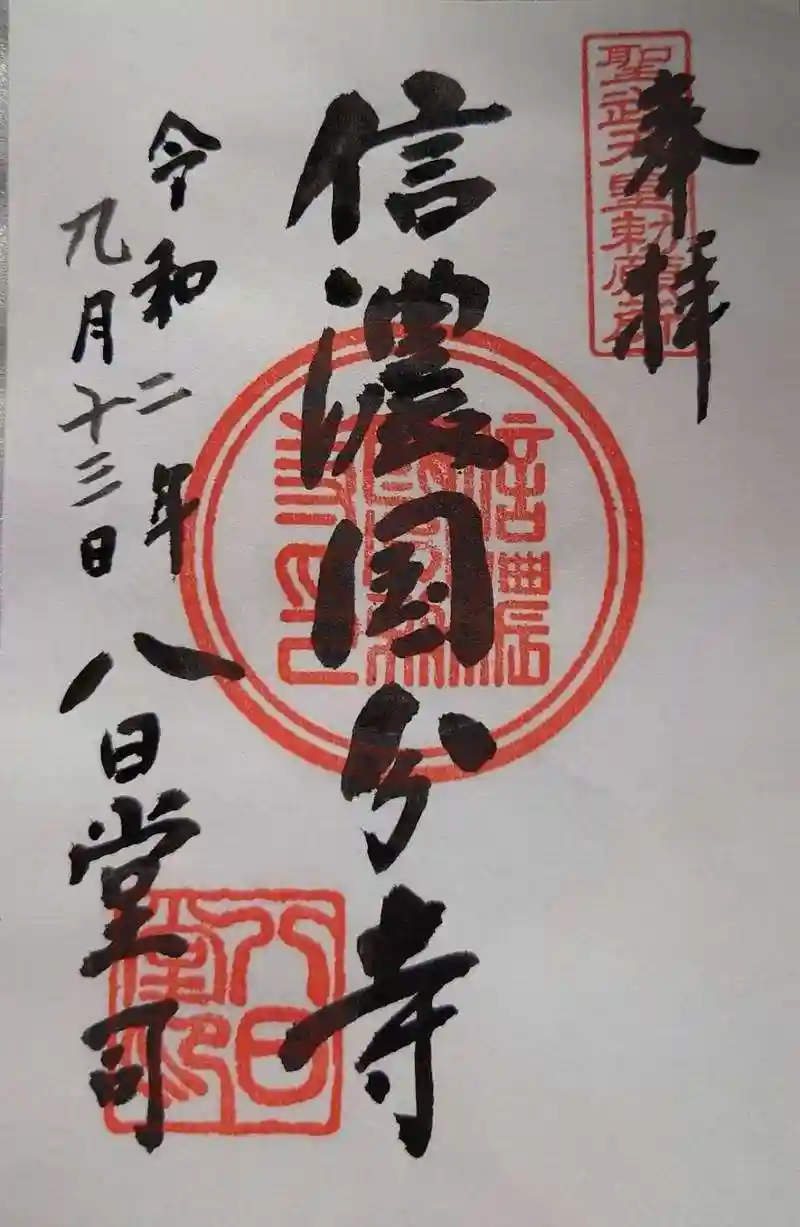 奉拝
聖武天皇勅願所
信濃国分寺
令和二年
九月十三日
八日堂司
八日堂印